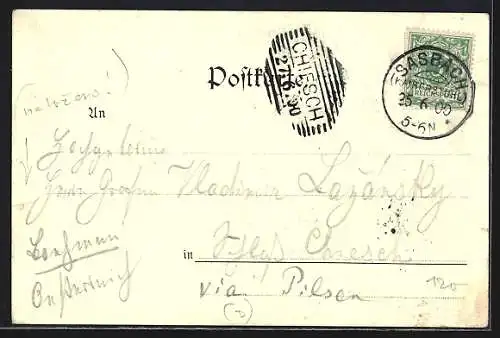 Postkarte
CHIESCH
27.6.00
SASBACH
25.6.00
5-6N
An
Hochgeboren
Herrn Grafen Vladimir Lažánsky
Boehmen
in Schloss Chiesch
Oesterreich
via Pilsen
120